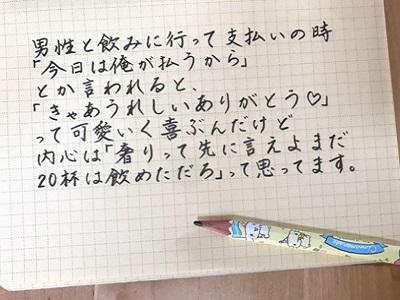 男性と飲みに行って支払いの時
「今日は俺が払うから」
とか言われると、
「きゃあうれしいありがとう♡」
って可愛いく喜ぶんだけど
内心は「奢りって先に言えよまだ
20杯は飲めただろ」って思ってます。